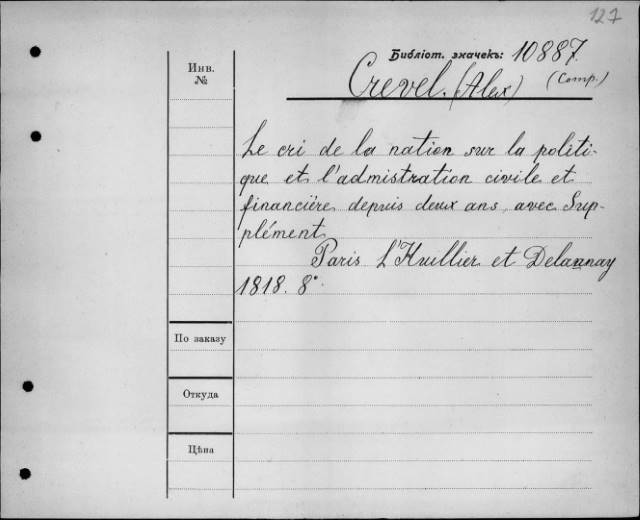 127
Библіот. значекъ: 10887
Инв.
№
Crevel. (Alex) (Comp.)
Le cri de la nation sur la politi-
que et l'admistration civile et
financière depuis deux ans, avec Sup-
plément
Paris L'Huillier et Delaunay
1818. 8°.
По заказу
Откуда
Цѣна